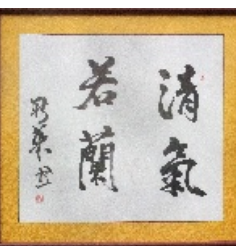 清氣
若蘭